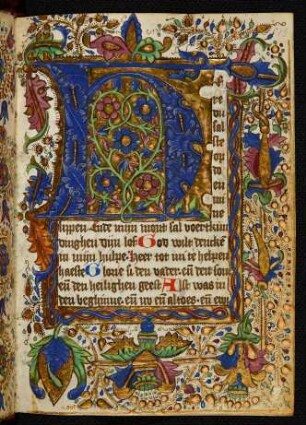 H
e
re
du
sal
ste
op
do
en
mi
ne
lippen. Ende mijn mont sal voertkun
dighen dijn lof God wilt dencke
in mijn hulpe. Heer tot mi te helpen
haeste Glorie si den vader. en̄ den soen
en̄ den heilighen geest Alst was in
den beghinne. en̄ nu en̄ altoes. en̄ ewi